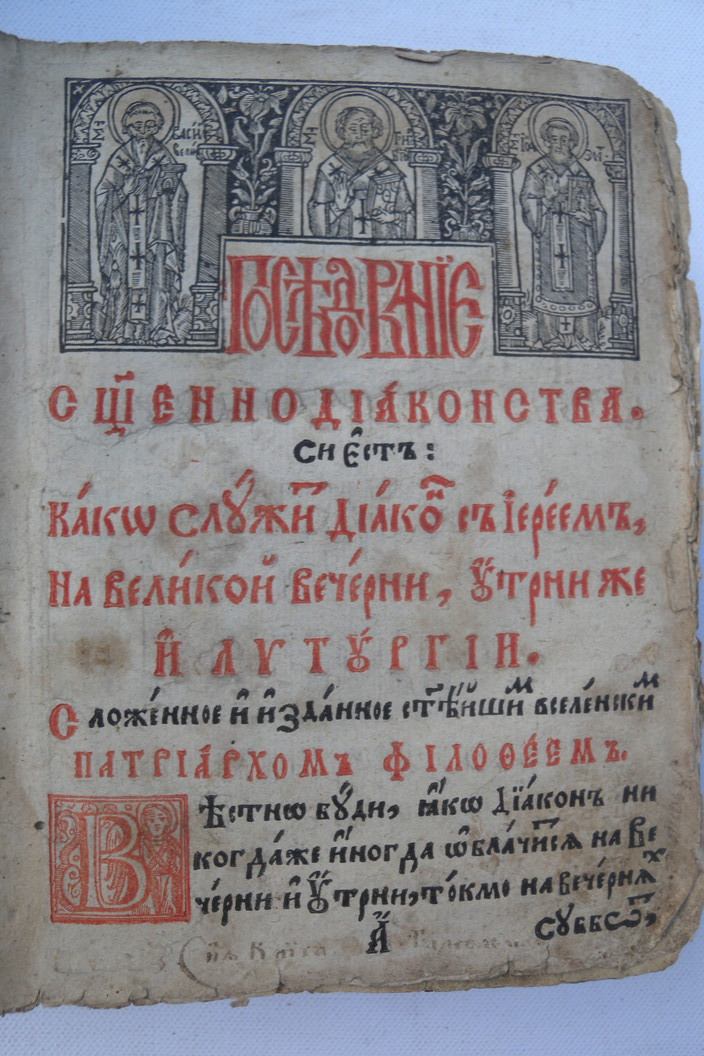 ПОСЛѢДОВАНЇЕ
СЩ҃ЕННОДІА́КОНСТВА.
СИ Е҆́СТЬ:
КА́КѠ СЛꙊ́ЖИ҃ ДІА́КО҃ СЪ ІЕРЕ́ЕМЪ,
НА ВЕЛИ́КОЙ ВЕЧЕ́РНИ, Ꙋ҆́ТРНИ ЖЕ
И҆ ЛУТꙊРГІИ.
Сложе́нное и҆ и҆зда́нное ст҃ѣ́йшиⷨ вселе́нскиⷨ
ПАТРІА́РХОМЪ ФІЛОѲЕ́ЕМЪ.
Вѣстнѡ бꙋ́ди, ꙗ҆́кѡ Дїа́конъ ни
когда́же и҆ногда ѡ҆блачи́тсѧ на Ве
че́рни и҆ Ꙋ҆́трни, то́кмо на вече́рнѧⷯ
сꙋббѡ҃,
А҃